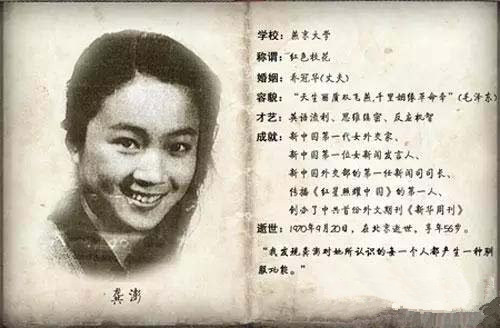 龚澎
学校：燕京大学
称谓：红色校花
婚姻：乔冠华(丈夫)
容貌：“天生丽质双飞燕,千里姻缘革命牵”(毛泽东)
才艺：英语流利、思维缜密、反应机智
成就：新中国第一代女外交家、
新中国第一位女新闻发言人、
新中国外交部的第一任新闻司司长、
传播《红星照耀中国》的第一人、
创办了中共首份外文期刊《新华周刊》
逝世：1970年9月20日，在北京逝世，享年56岁。
“我发现龚澎对她所认识的每一个人都产生一种驯
服功能。”